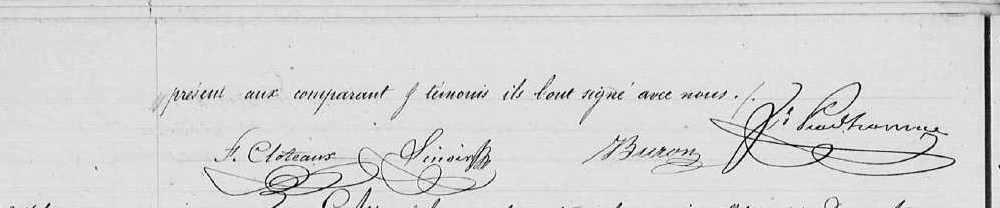 présent aux comparant & témoins ils l'ont signé avec nous ./.
F. Cloteaux Buron Prudhomme